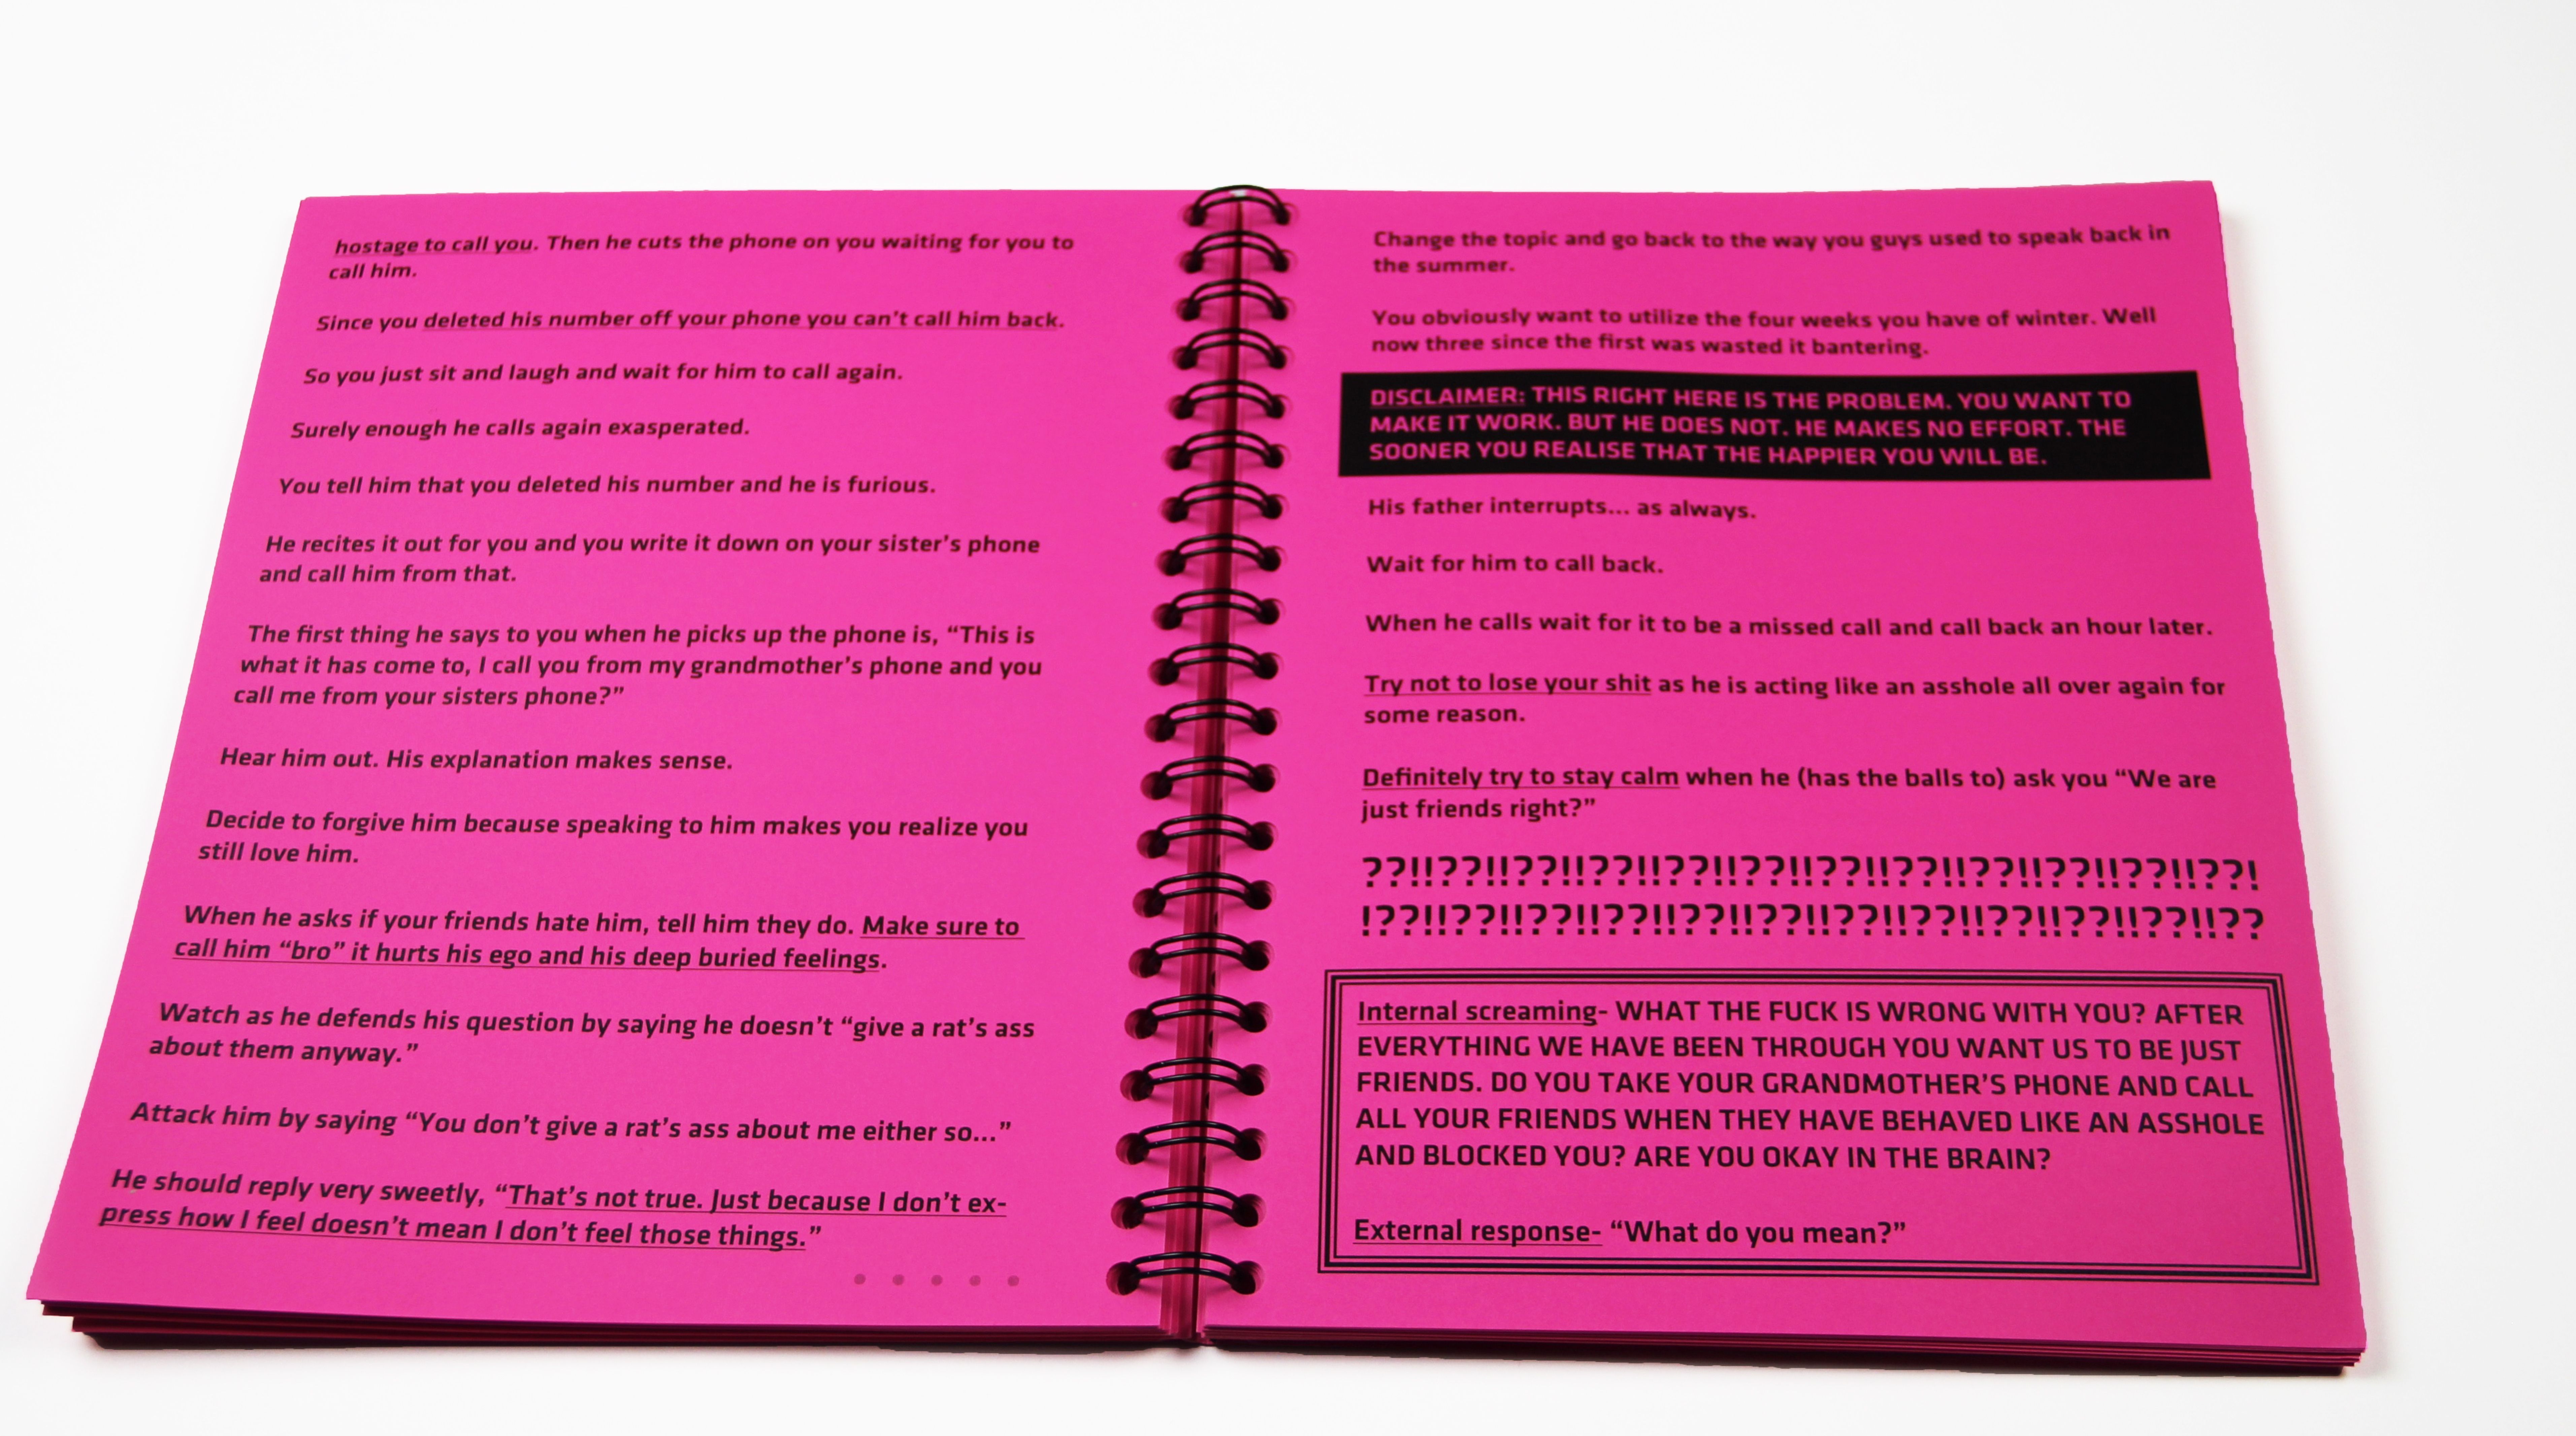 hostage to call you. Then he cuts the phone on you waiting for you to
call him.
Since you deleted his number off your phone you can't call him back.
So you just sit and laugh and wait for him to call again.
Surely enough he calls again exasperated.
You tell him that you deleted his number and he is furious.
He recites it out for you and you write it down on your sister's phone
and call him from that.
The first thing he says to you when he picks up the phone is, “This is
what it has come to, I call you from my grandmother's phone and you
call me from your sisters phone?”
Hear him out. His explanation makes sense.
Decide to forgive him because speaking to him makes you realize you
still love him.
When he asks if your friends hate him, tell him they do. Make sure to
call him “bro” it hurts his ego and his deep buried feelings.
Watch as he defends his question by saying he doesn't “give a rat's ass
about them anyway.”
Attack him by saying “You don't give a rat's ass about me either so...”
He should reply very sweetly, “That's not true. Just because I don't ex-
press how I feel doesn't mean I don't feel those things.”
Change the topic and go back to the way you guys used to speak back in
the summer.
You obviously want to utilize the four weeks you have of winter. Well
now three since the first was wasted it bantering.
DISCLAIMER: THIS RIGHT HERE IS THE PROBLEM. YOU WANT TO
MAKE IT WORK. BUT HE DOES NOT. HE MAKES NO EFFORT. THE
SOONER YOU REALISE THAT THE HAPPIER YOU WILL BE.
His father interrupts... as always.
Wait for him to call back.
When he calls wait for it to be a missed call and call back an hour later.
Try not to lose your shit as he is acting like an asshole all over again for
some reason.
Definitely try to stay calm when he (has the balls to) ask you “We are
just friends right?”
??!!??!!??!!??!!??!!??!!??!!??!!??!!??!!??!!??!
!??!!??!!??!!??!!??!!??!!??!!??!!??!!??!!??!!??
Internal screaming- WHAT THE FUCK IS WRONG WITH YOU? AFTER
EVERYTHING WE HAVE BEEN THROUGH YOU WANT US TO BE JUST
FRIENDS. DO YOU TAKE YOUR GRANDMOTHER'S PHONE AND CALL
ALL YOUR FRIENDS WHEN THEY HAVE BEHAVED LIKE AN ASSHOLE
AND BLOCKED YOU? ARE YOU OKAY IN THE BRAIN?
External response- “What do you mean?”